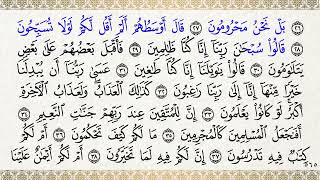 ٢٦ بَلْ نَحْنُ مَحْرُومُونَ ٢٧ قَالَ أَوْسَطُهُمْ أَلَمْ أَقُل لَّكُمْ لَوْلَا تُسَبِّحُونَ
٢٨ قَالُوا۟ سُبْحَٰنَ رَبِّنَآ إِنَّا كُنَّا ظَٰلِمِينَ ٢٩ فَأَقْبَلَ بَعْضُهُمْ عَلَىٰ بَعْضٍ
يَتَلَٰوَمُونَ ٣٠ قَالُوا۟ يَٰوَيْلَنَآ إِنَّا كُنَّا طَٰغِينَ ٣١ عَسَىٰ رَبُّنَآ أَن يُبْدِلَنَا
خَيْرًا مِّنْهَآ إِنَّآ إِلَىٰ رَبِّنَا رَٰغِبُونَ ٣٢ كَذَٰلِكَ ٱلْعَذَابُ وَلَعَذَابُ ٱلْءَاخِرَةِ
أَكْبَرُ لَوْ كَانُوا۟ يَعْلَمُونَ ٣٣ إِنَّ لِلْمُتَّقِينَ عِندَ رَبِّهِمْ جَنَّٰتِ ٱلنَّعِيمِ
٣٤ أَفَنَجْعَلُ ٱلْمُسْلِمِينَ كَٱلْمُجْرِمِينَ ٣٥ مَا لَكُمْ كَيْفَ تَحْكُمُونَ ٣٦ أَمْ لَكُمْ
كِتَٰبٌ فِيهِ تَدْرُسُونَ ٣٧ إِنَّ لَكُمْ فِيهِ لَمَا تَخَيَّرُونَ ٣٨ أَمْ لَكُمْ أَيْمَٰنٌ عَلَيْنَا
٥٦٥